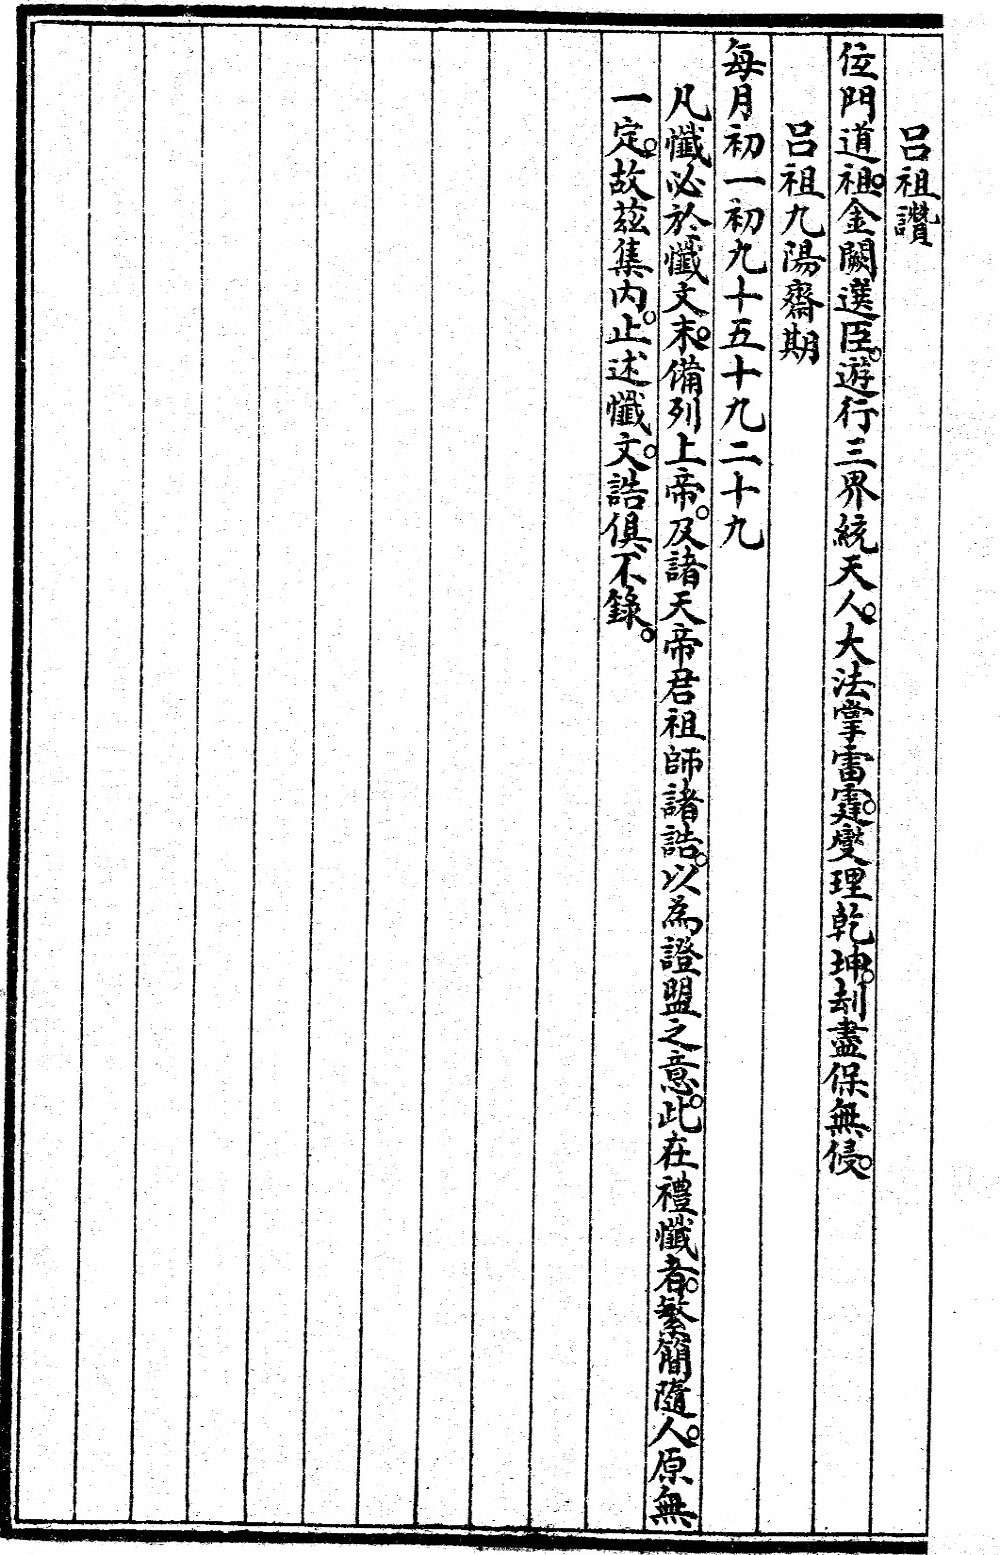 呂祖讚
位門道祖。金闕選臣。遊行三界統天人。大法掌雷霆。燮理乾坤。刦盡保無侵。
呂祖九陽齋期
每月初一初九十五十九二十九
凡懺必於懺文末。備列上帝。及諸天帝君祖師諸誥。以為證盟之意。此在禮懺者。繁簡隨人。原無
一定。故茲集內。止述懺文。誥俱不錄。